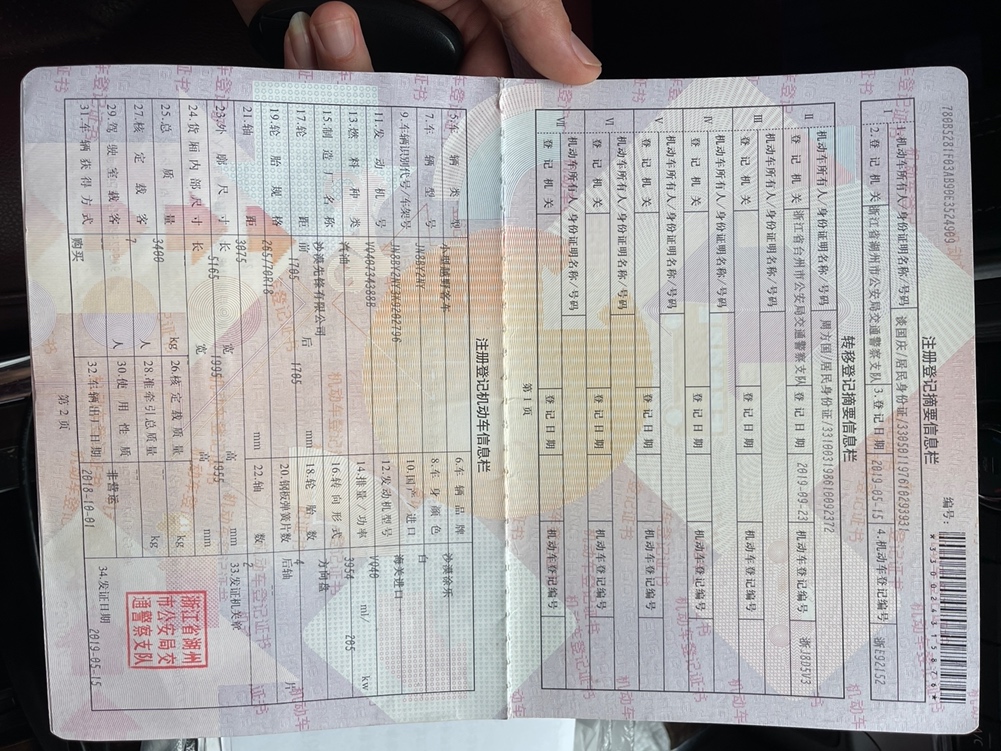 注册登记摘要信息栏
编号:
78005281F03A890E3524909
*330024315876*
Ⅰ
1.机动车所有人/身份证明名称/号码 谈国庆/居民身份证/330501197610293931
2.登记机关 浙江省湖州市公安局交通警察支队 3.登记日期 2019-05-15 4.机动车登记编号 浙E92152
转移登记摘要信息栏
Ⅱ
机动车所有人/身份证明名称/号码 周方国/居民身份证/331003198610092372
登记机关 浙江省台州市公安局交通警察支队 登记日期 2019-09-23 机动车登记编号 浙J805V3
Ⅲ
机动车所有人/身份证明名称/号码
登记机关 登记日期 机动车登记编号
Ⅳ
机动车所有人/身份证明名称/号码
登记机关 登记日期 机动车登记编号
Ⅴ
机动车所有人/身份证明名称/号码
登记机关 登记日期 机动车登记编号
Ⅵ
机动车所有人/身份证明名称/号码
登记机关 登记日期 机动车登记编号
Ⅶ
机动车所有人/身份证明名称/号码
登记机关 登记日期 机动车登记编号
第1页
注册登记机动车信息栏
5.车辆类型 小型越野客车 6.车辆品牌 沙漠徐乐
7.车辆型号 JN8BY2NY 8.车身颜色 白
9.车辆识别代号/车架号 JN8BY2NY3K9202796 10.国产/进口 海关进口
11.发动机号 VQ40734388B 12.发动机型号 VQ40
13.燃料种类 汽油 14.排量/功率 3954 ml/ 205 kw
15.制造厂名称 沙漠先锋有限公司 16.转向形式 方向盘
17.轮距 前 1705 后 1705 mm 18.轮胎数 4
19.轮胎规格 265/70R18 20.钢板弹簧片数 后轴 片
21.轴距 3075 mm 22.轴数 2
23.外廓尺寸 长 5165 宽 1995 高 1955 mm 33.发证机关章
24.货厢内部尺寸 长 宽 高 mm
25.总质量 3400 kg 26.核定载质量 kg
27.核定载客 7 人 28.准牵引总质量 kg
29.驾驶室载客 人 30.使用性质 非营运
31.车辆获得方式 购买 32.车辆出厂日期 2018-10-01 34.发证日期 2019-05-15
浙江省湖州
市公安局交
通警察支队
第2页